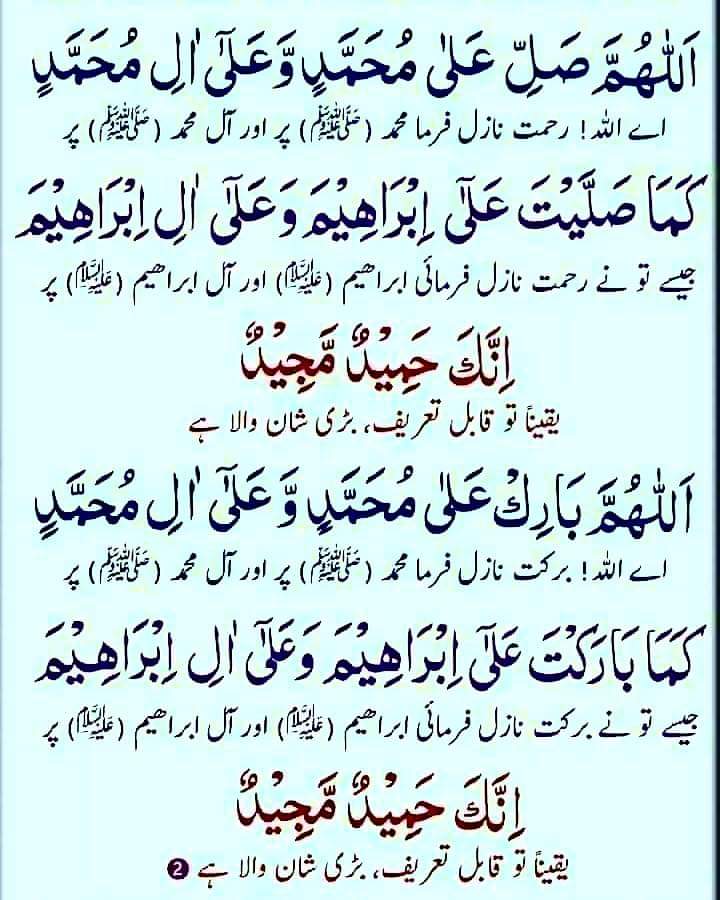 اَللّٰهُمَّ صَلِّ عَلٰى مُحَمَّدٍ وَّعَلٰٓى اٰلِ مُحَمَّدٍ
اے اللہ! رحمت نازل فرما محمد (ﷺ) پر اور آل محمد (ﷺ) پر
كَمَا صَلَّيْتَ عَلٰٓى اِبْرَاهِيْمَ وَعَلٰٓى اٰلِ اِبْرَاهِيْمَ
جیسے تو نے رحمت نازل فرمائی ابراھیم (علیہ السلام) اور آل ابراھیم (علیہ السلام) پر
اِنَّكَ حَمِيْدٌ مَّجِيْدٌ
یقیناً تو قابل تعریف، بڑی شان والا ہے
اَللّٰهُمَّ بَارِكْ عَلٰى مُحَمَّدٍ وَّعَلٰٓى اٰلِ مُحَمَّدٍ
اے اللہ! برکت نازل فرما محمد (ﷺ) پر اور آل محمد (ﷺ) پر
كَمَا بَارَكْتَ عَلٰٓى اِبْرَاهِيْمَ وَعَلٰٓى اٰلِ اِبْرَاهِيْمَ
جیسے تو نے برکت نازل فرمائی ابراھیم (علیہ السلام) اور آل ابراھیم (علیہ السلام) پر
اِنَّكَ حَمِيْدٌ مَّجِيْدٌ
یقیناً تو قابل تعریف، بڑی شان والا ہے 2